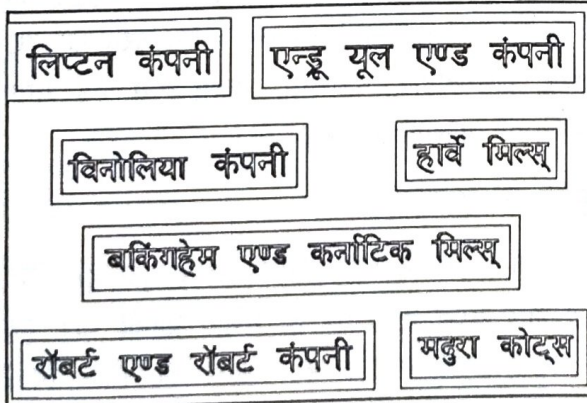 लिप्टन कंपनी
एन्ड्रू यूल एण्ड कंपनी
विनोलिया कंपनी
हार्वे मिल्स्
बकिंगहेम एण्ड कर्नाटिक मिल्स्
रॉबर्ट एण्ड रॉबर्ट कंपनी
मदुरा कोट्स